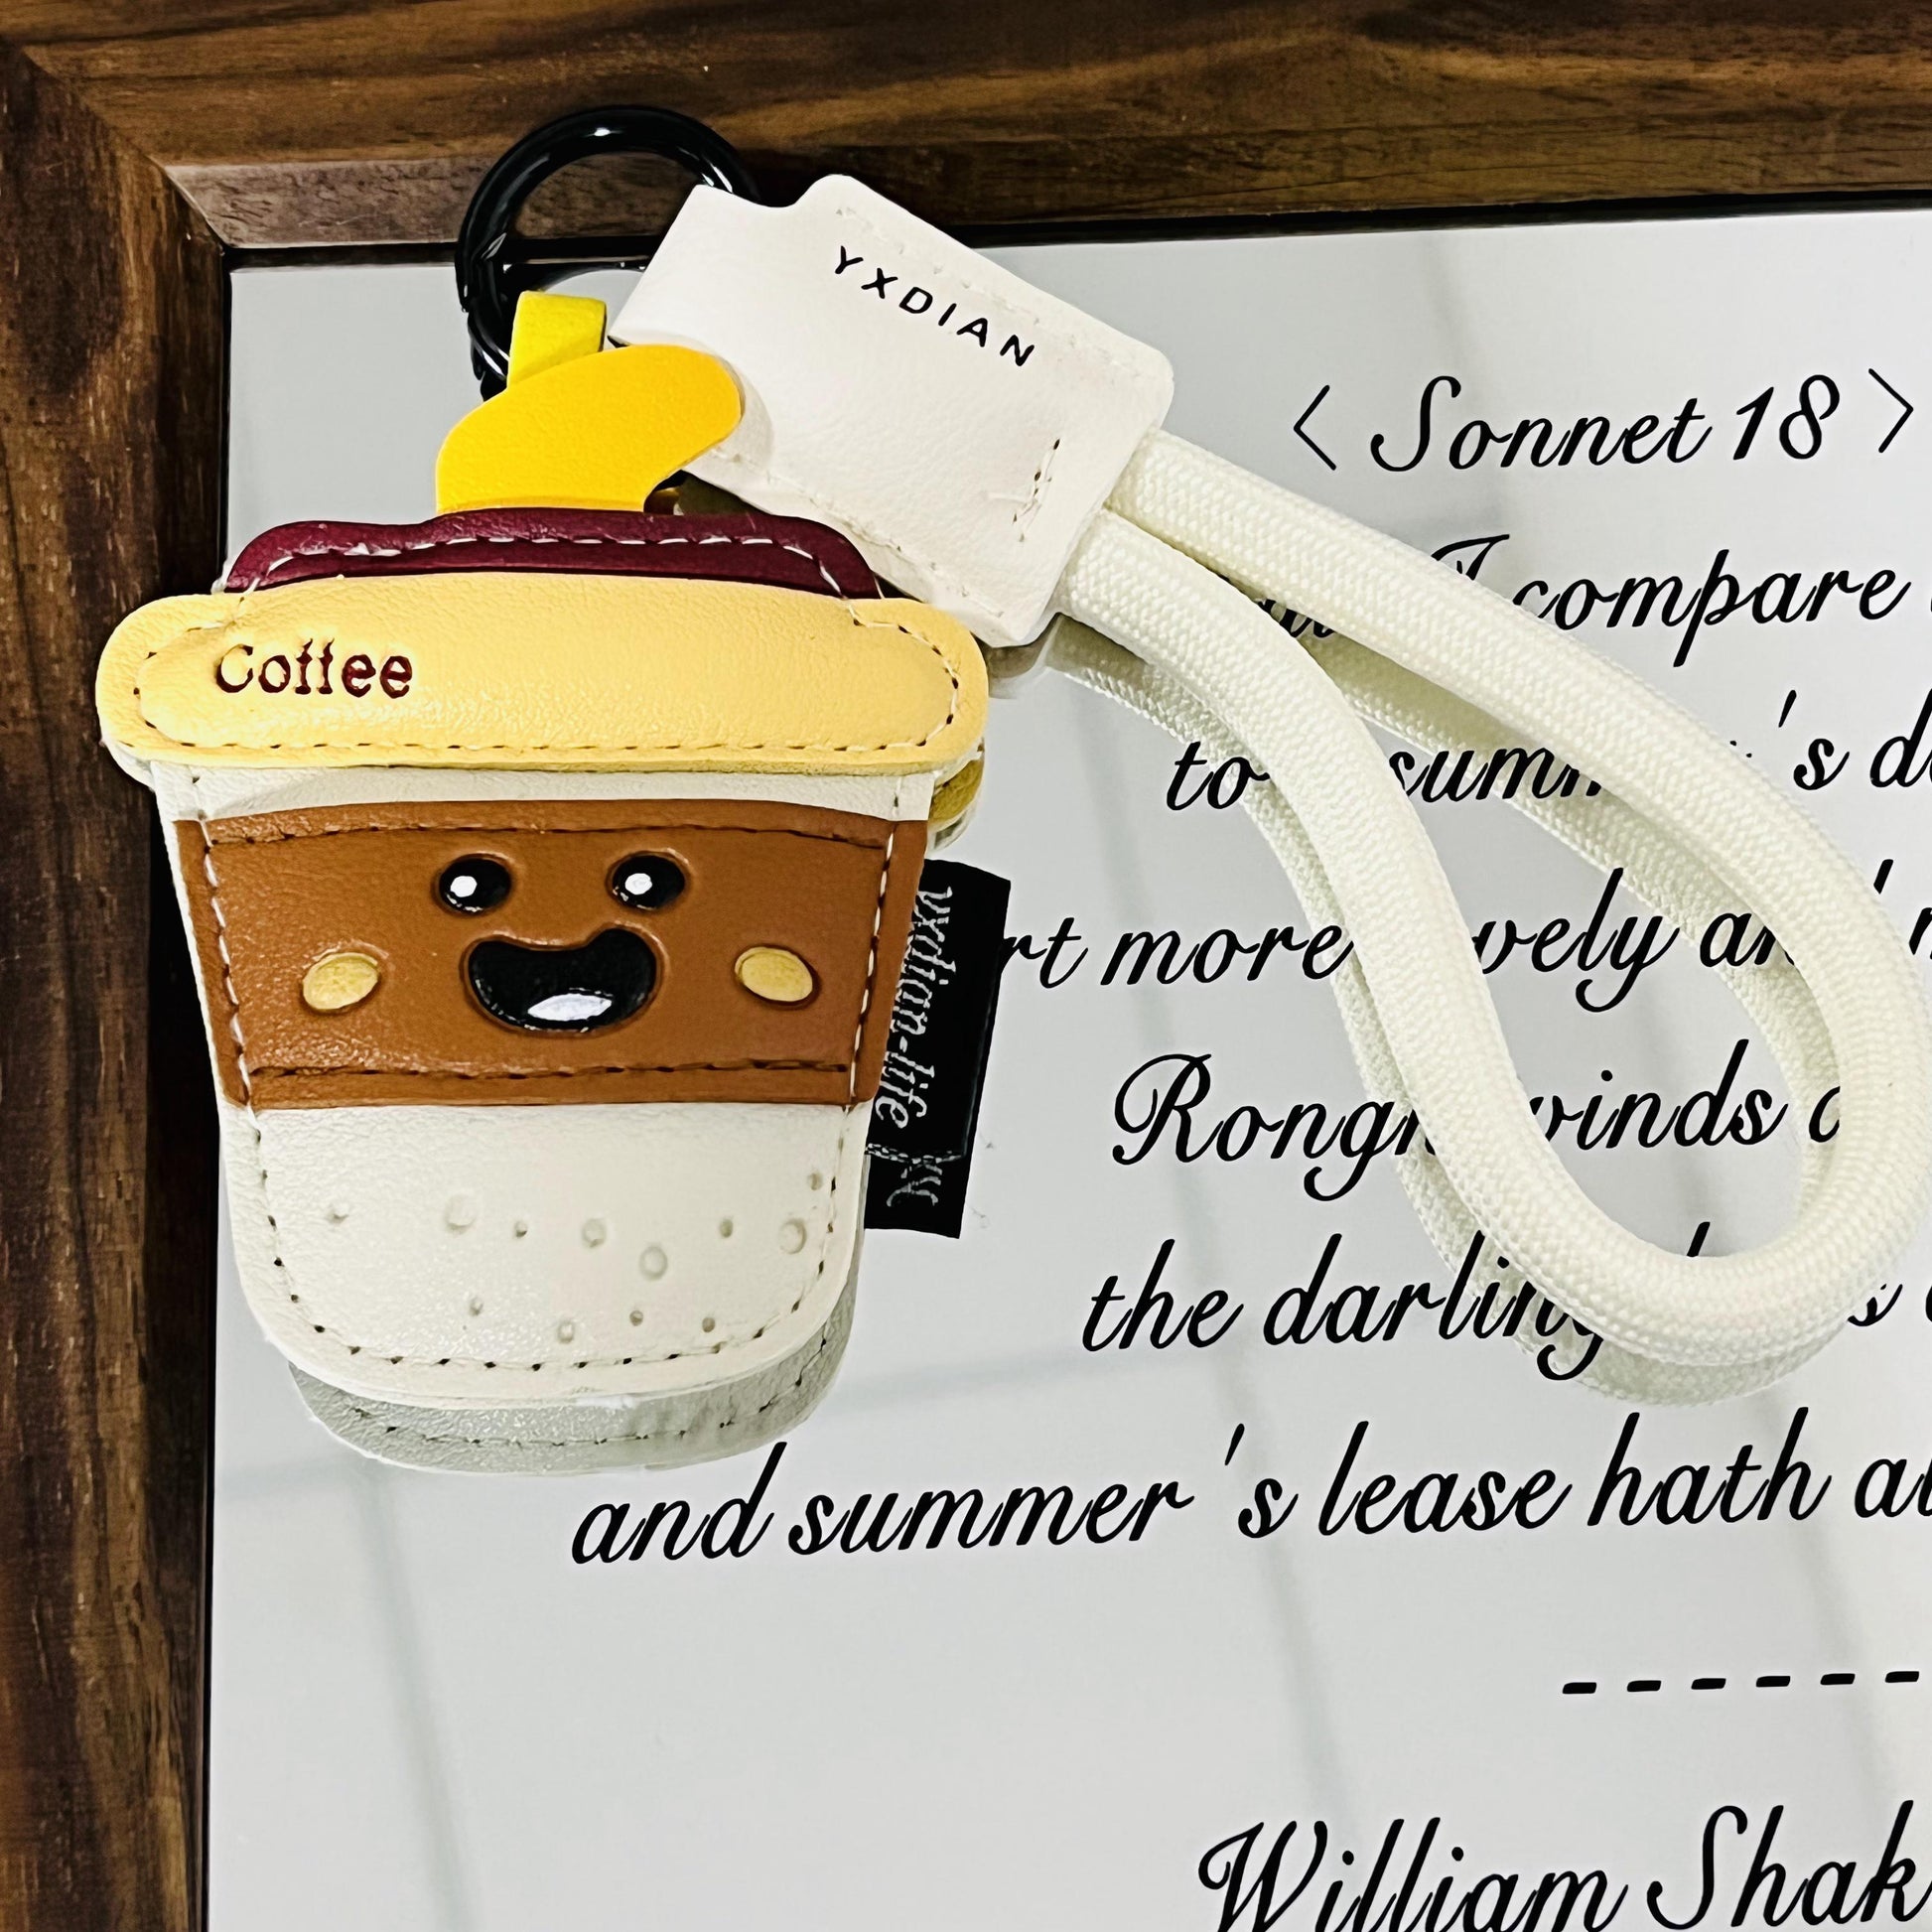 YXDIAN
Coffee
yxdian-life
< Sonnet 18 >
I compare
to summ 's d
rt more vely an
Rongh winds
the darling s
and summer 's lease hath al
------
William Shak